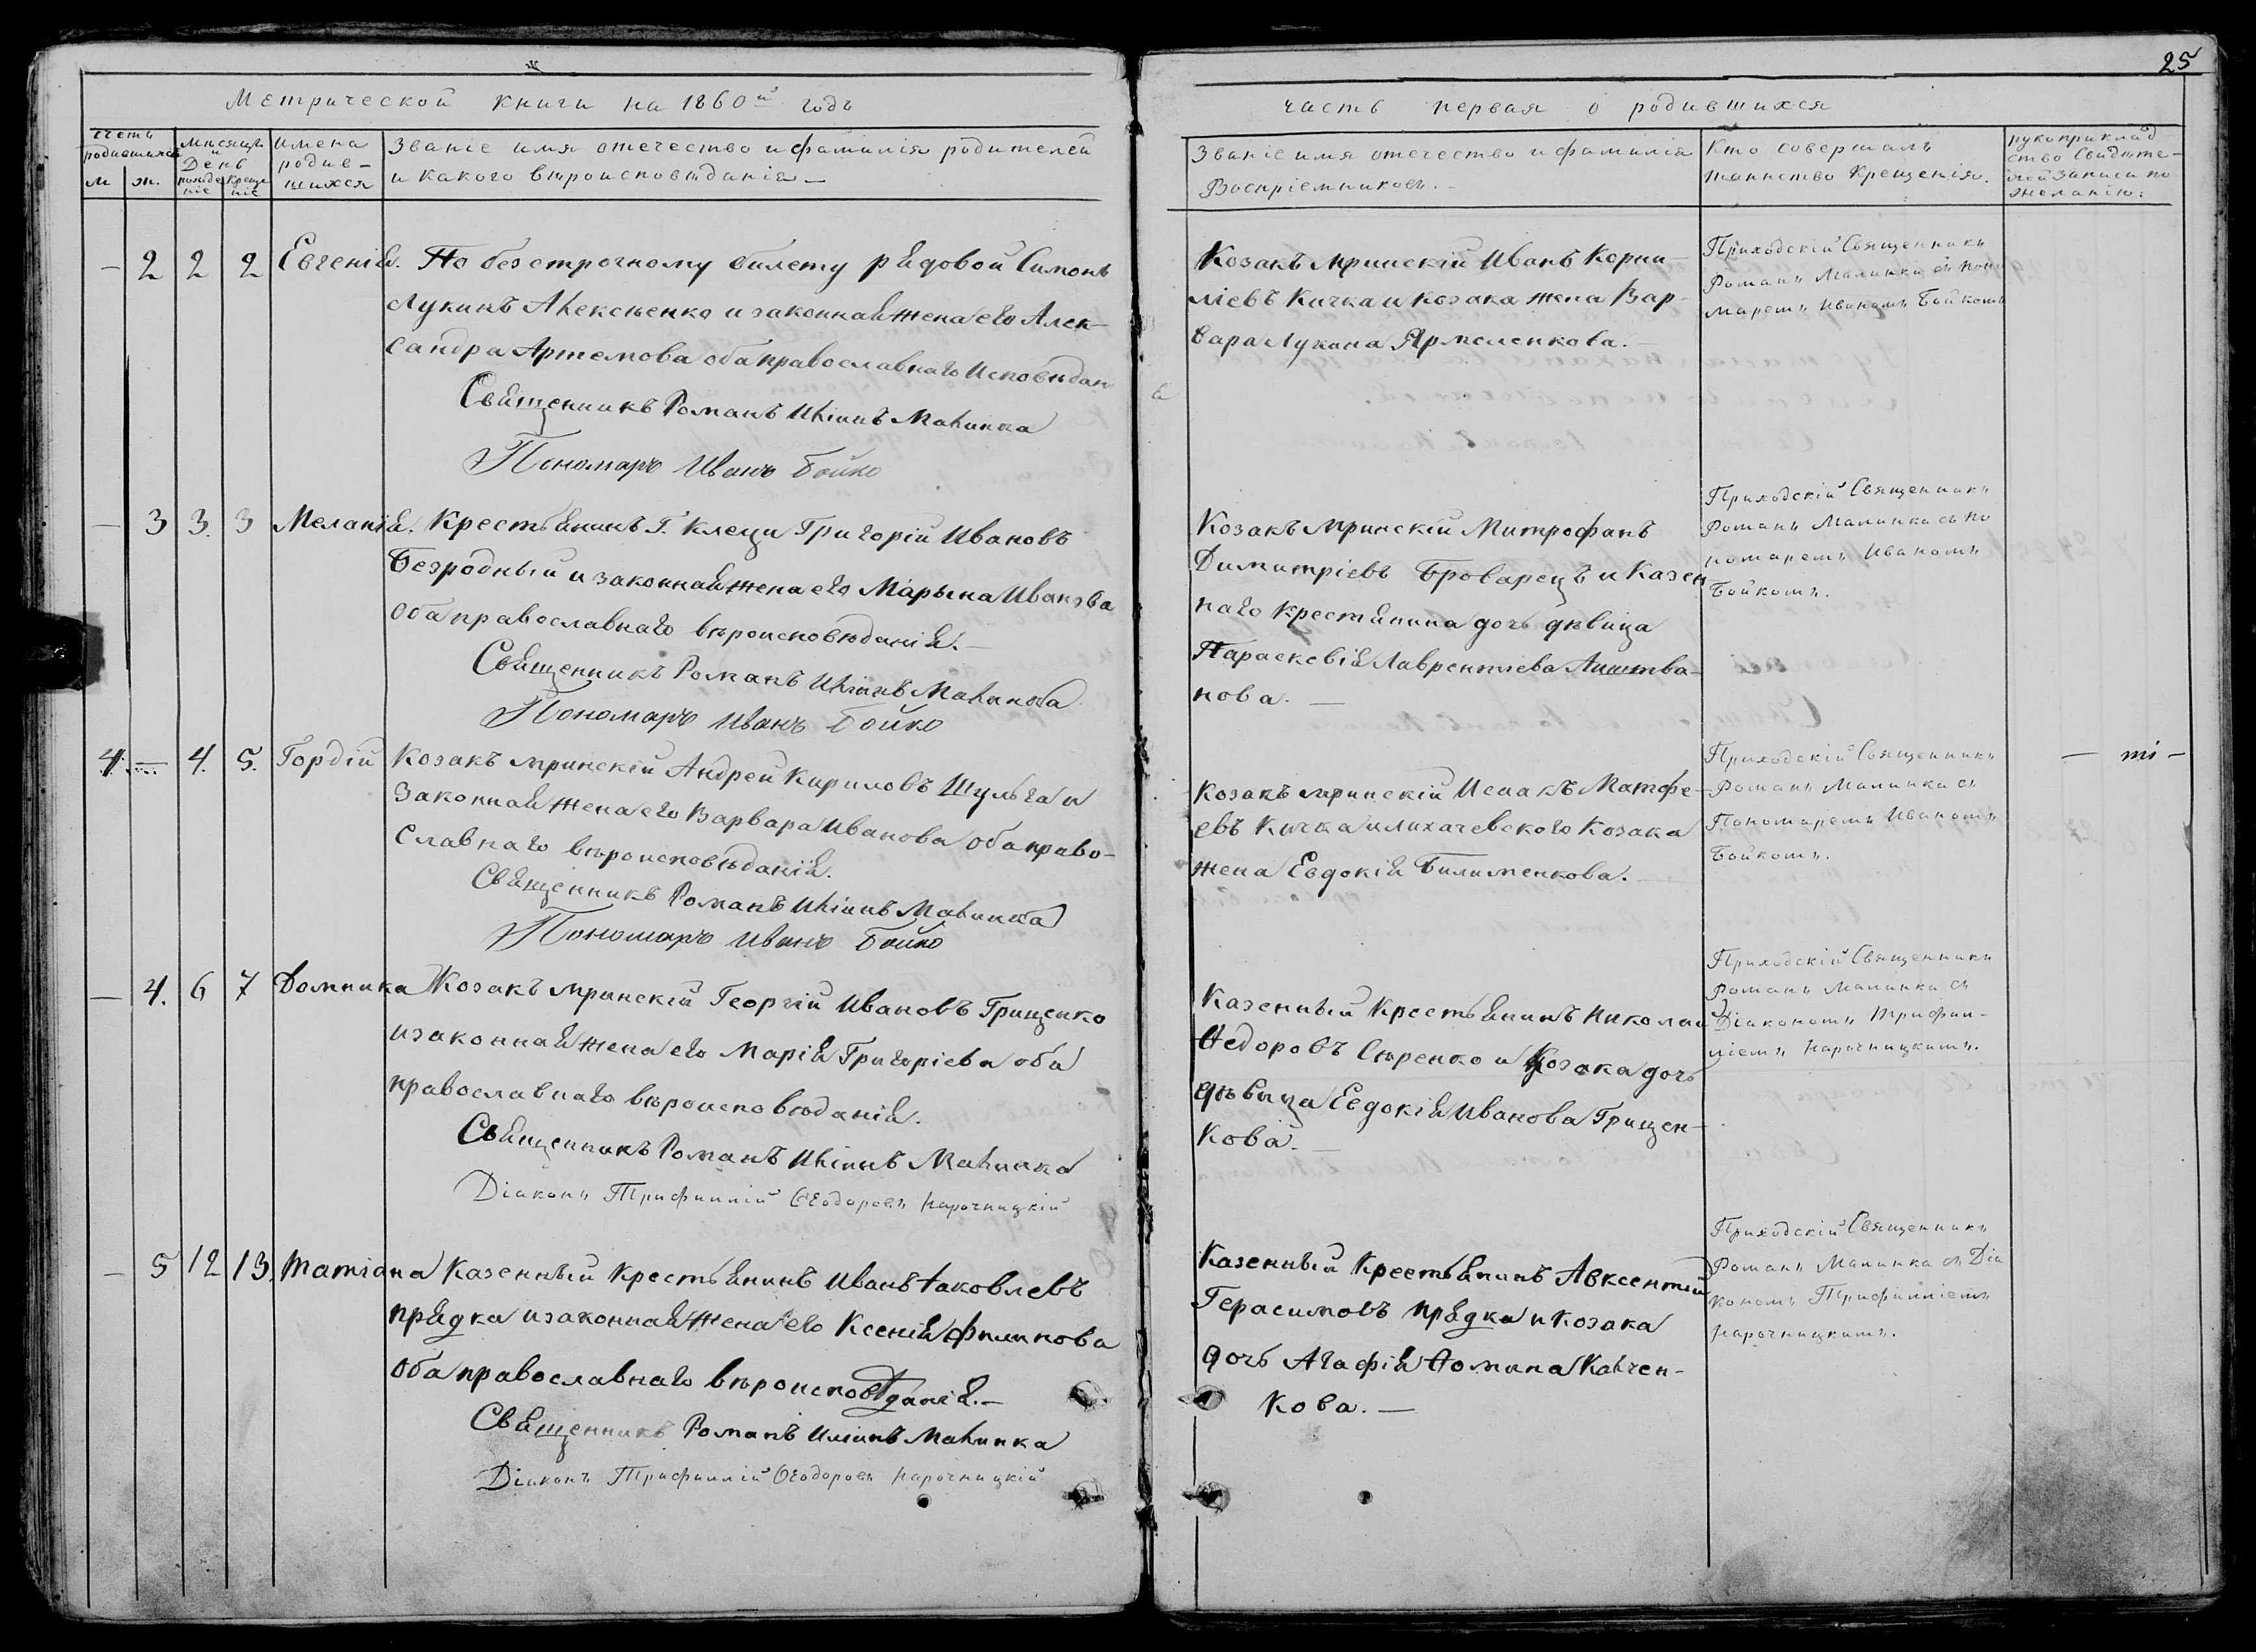 25
Метрической книги на 1860й годъ
часть первая о родившихся
счетъ родившихся
м ж.
мѣсяцъ и День
рожде ніе креще ніе
имена родив- шихся
Званіе имя отечество и фамилія родителей
и какого вѣроисповѣданія —
Званіе имя отечество и фамилія
Воспріемниковъ. -
Кто совершалъ
таинство Крещенія.
рукоприклад
ство Свидѣте-
лей записи по
желанію:
— 2 2 2 Евгенія. По безсрочному билету рядовой Симонъ
Лукинъ Алексѣенко и законная жена его Алек-
сандра Артемова оба православнаго Исповѣдан
Священникъ Романъ Иліинъ Малинка
Пономарь Иванъ Бойко
Козакъ мринскій Иванъ Корни-
ліевъ Кичка и козака жена Вар-
вара Лукина Ярмоленкова. -
Приходскій Священникъ
Романъ Малинка съ поно
маремъ Иваномъ Бойкомъ
— 3 3. 3 Меланія. Крестьянинъ Г. Клеци Григорій Ивановъ
Безродный и законная жена его Марьина Иванова
Оба православнаго вѣроисповѣданія. —
Священникъ Романъ Иліинъ Малинка
Пономарь Иванъ Бойко
Козакъ мринскій Митрофанъ
Димитріевъ Броварецъ и Казен
наго крестянина дочь дѣвица
Параскевія Лаврентіева
нова. —
Приходскій Священникъ
Романъ Малинка съ по
номаремъ Иваномъ
Бойкомъ.
4. — 4. 5. Гордій Козакъ мринскій Андрей Кириловъ Шульга и
Законная жена его Варвара Иванова оба право-
славнаго вѣроисповѣданія.
Священникъ Романъ Иліинъ Малинка
Пономарь Иванъ Бойко
Козакъ мринскій Исаакъ Матфе-
евъ Кичка и лихачевского Козака
жена Евдокія Билименкова. —
Приходскій Священникъ
Романъ Малинка съ
Пономаремъ Иваномъ
Бойкомъ.
— 4. 6 7 Домника Козакъ мринскій Георгій Ивановъ Грищенко
и законная жена его Марія Григоріева оба
православнаго вѣроисповѣданія.
Священникъ Романъ Иліинъ Малинка
Діаконъ Трифиллій Ѳеодоровъ Нарочницкій
Казенный Крестьянинъ Николай
Ѳедоровъ Сѣренко и Козака дочь
дѣвица Евдокія Иванова Грищен-
кова. —
Приходскій Священникъ
Романъ Малинка съ
Діакономъ Трифил-
ліемъ Нарочницкимъ.
— 5 12 13. Татіана Казенный Крестьянинъ Иванъ Іаковлевъ
прядка и законная жена его Ксенія Филипова
Оба православнаго вѣроисповѣданія. —
Священникъ Романъ Иліинъ Малинка
Діаконъ Трифиллій Ѳеодоровъ Нарочницкій
Казенный Крестьянинъ Авксентій
Герасимовъ прядка и козака
дочь Агафія Ѳомина Калчен-
кова. —
Приходскій Священникъ
Романъ Малинка съ Діа
кономъ Трифилліемъ
Нарочницкимъ.